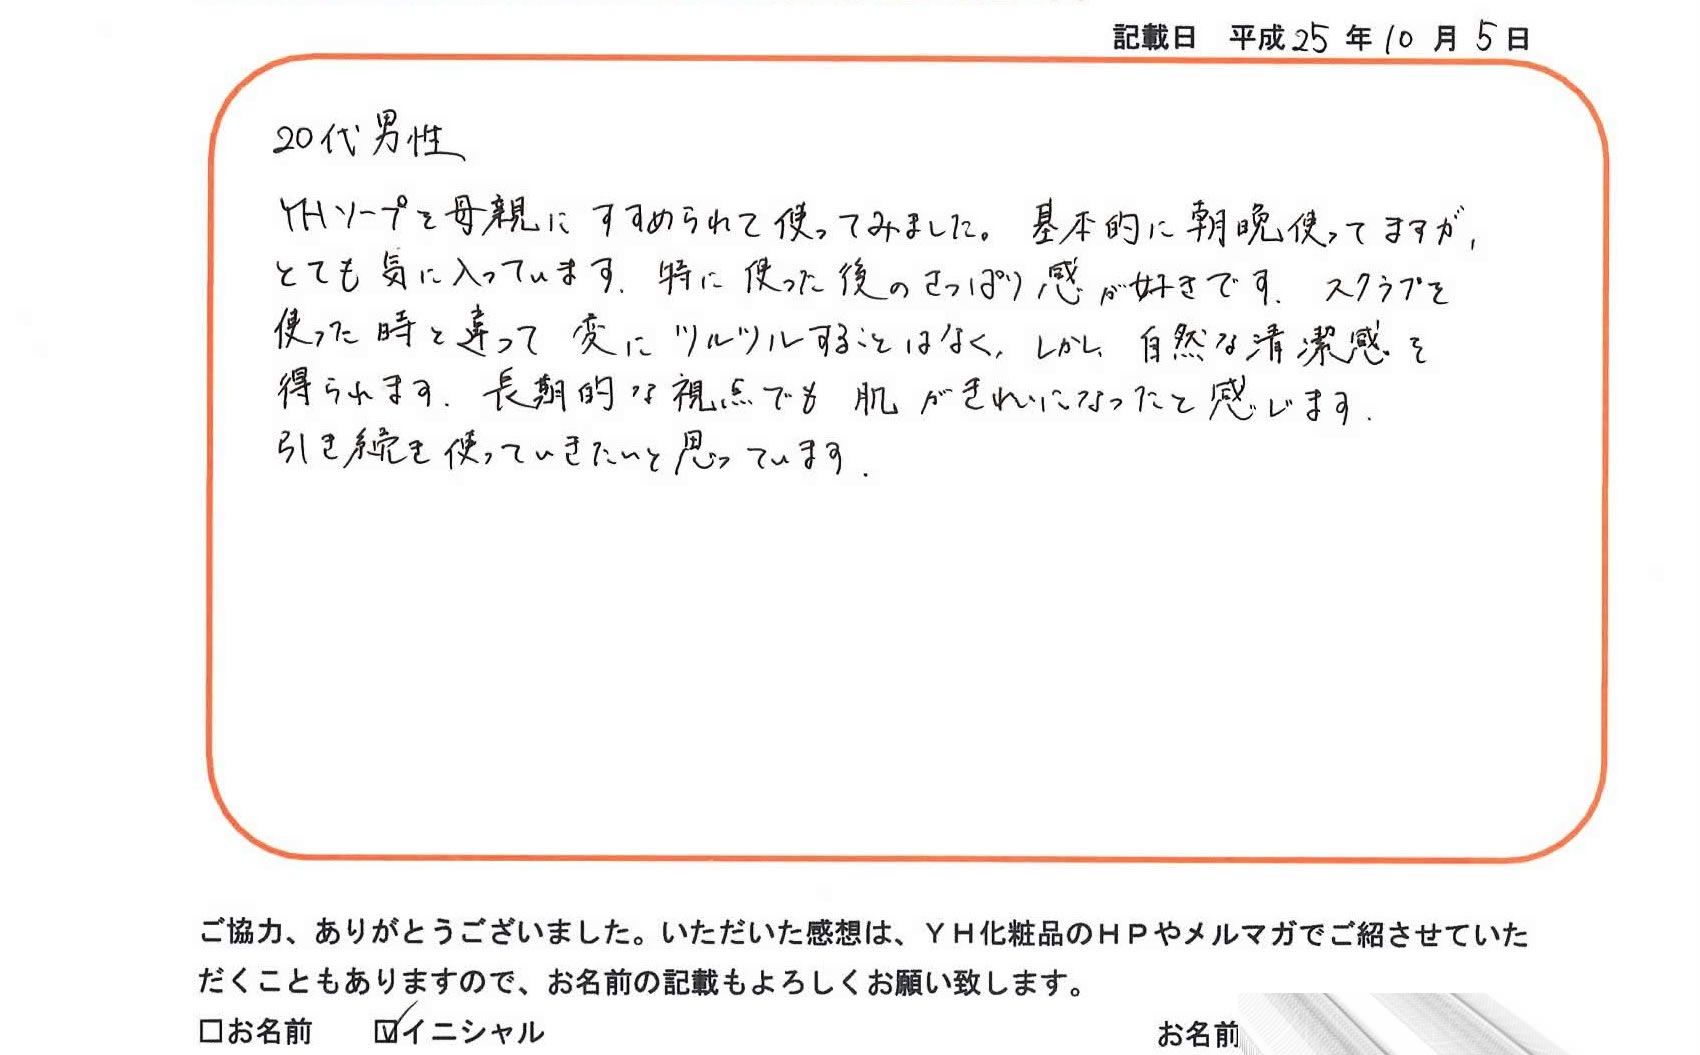 記載日 平成25年10月5日
20代男性
YHソープを母親にすすめられて使ってみました。基本的に朝晩使ってますが,
とても気に入っています. 特に使った後のさっぱり感が好きです. スクラブを
使った時と違って変にツルツルすることはなく, しかし自然な清潔感を
得られます. 長期的な視点でも肌がきれいになったと感じます.
引き続き使っていきたいと思っています.
ご協力、ありがとうございました。いただいた感想は、YH化粧品のHPやメルマガでご紹させていた
だくこともありますので、お名前の記載もよろしくお願い致します。
□お名前 ☑イニシャル お名前